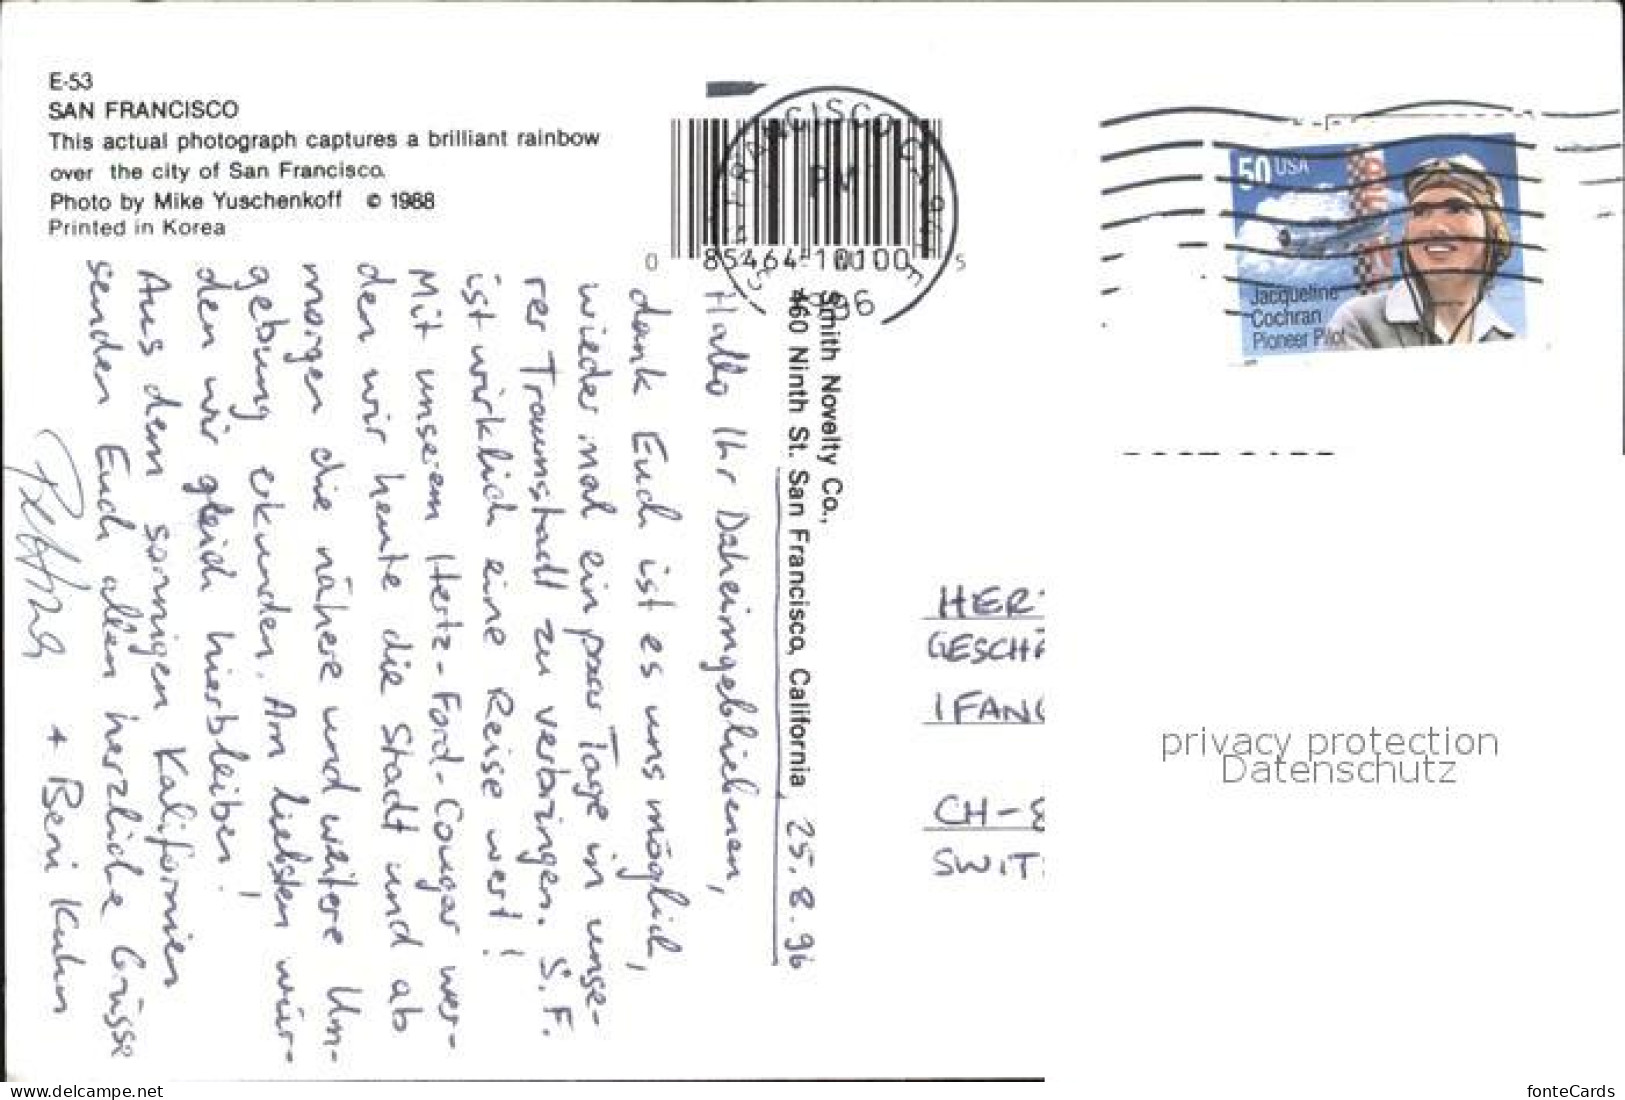 E-53
SAN FRANCISCO
This actual photograph captures a brilliant rainbow
over the city of San Francisco.
Photo by Mike Yuschenkoff © 1988
Printed in Korea
0 85464-10100 5
SAN FRANCISCO CA
PM
1996
50 USA
Jacqueline
Cochran
Pioneer Pilot
Smith Novelty Co.,
460 Ninth St. San Francisco, California, 25.8.96
Hallo Ihr Daheimgebliebenen,
dank Euch ist es uns möglich,
wieder mal ein paar Tage in unse-
rer Traumstadt zu verbringen. S.F.
ist wirklich eine Reise wert!
Mit unserem Hertz-Ford-Cougar wer-
den wir heute die Stadt und ab
morgen die nähere und weitere Um-
gebung erkunden. Am liebsten wür-
den wir gleich hierbleiben!
Aus dem sonnigen Kalifornien
senden Euch allen herzliche Grüsse
+ Beni Kuhn
HER
GESCH
IFANG
CH-
SWIT
privacy protection
Datenschutz
www.ansichtskarten-center.de
fonteCards